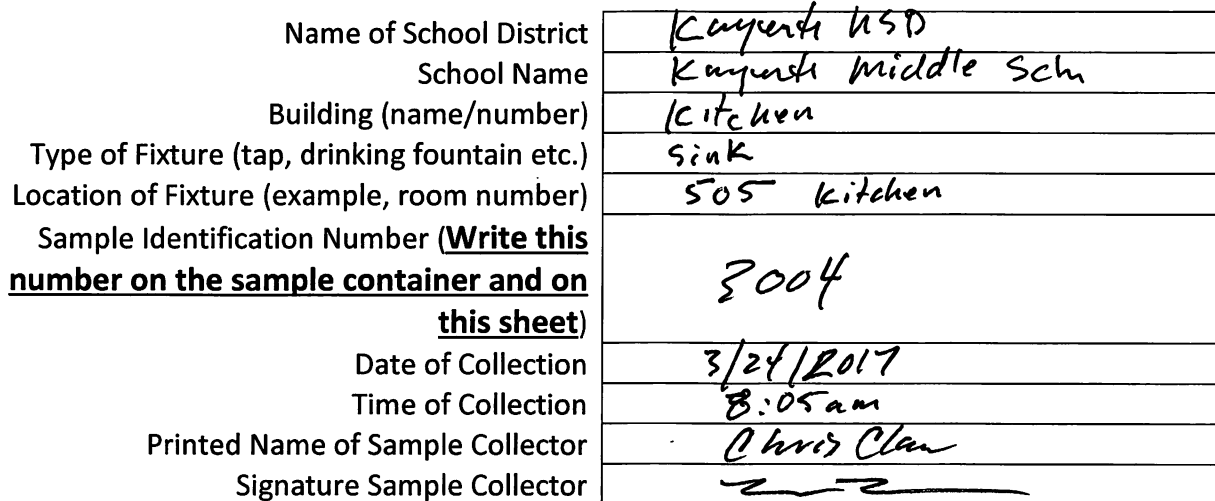 Name of School District Kayenta USD
School Name Kayenta Middle Sch
Building (name/number) Kitchen
Type of Fixture (tap, drinking fountain etc.) Sink
Location of Fixture (example, room number) 505 Kitchen
Sample Identification Number (Write this
number on the sample container and on
this sheet) 3004
Date of Collection 3/24/2017
Time of Collection 8:05am
Printed Name of Sample Collector Chris Claw
Signature Sample Collector